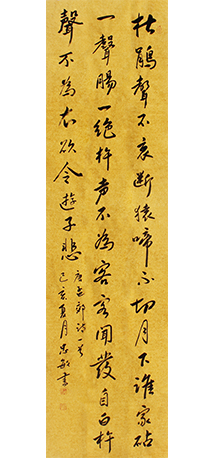 杜鹃聲不哀断猿啼不切月下谁家砧
一聲腸一绝杵声不為客客闻發自白杵
聲不為衣欲令遊子悲
唐孟郊诗一首
己亥夏月忠敏書